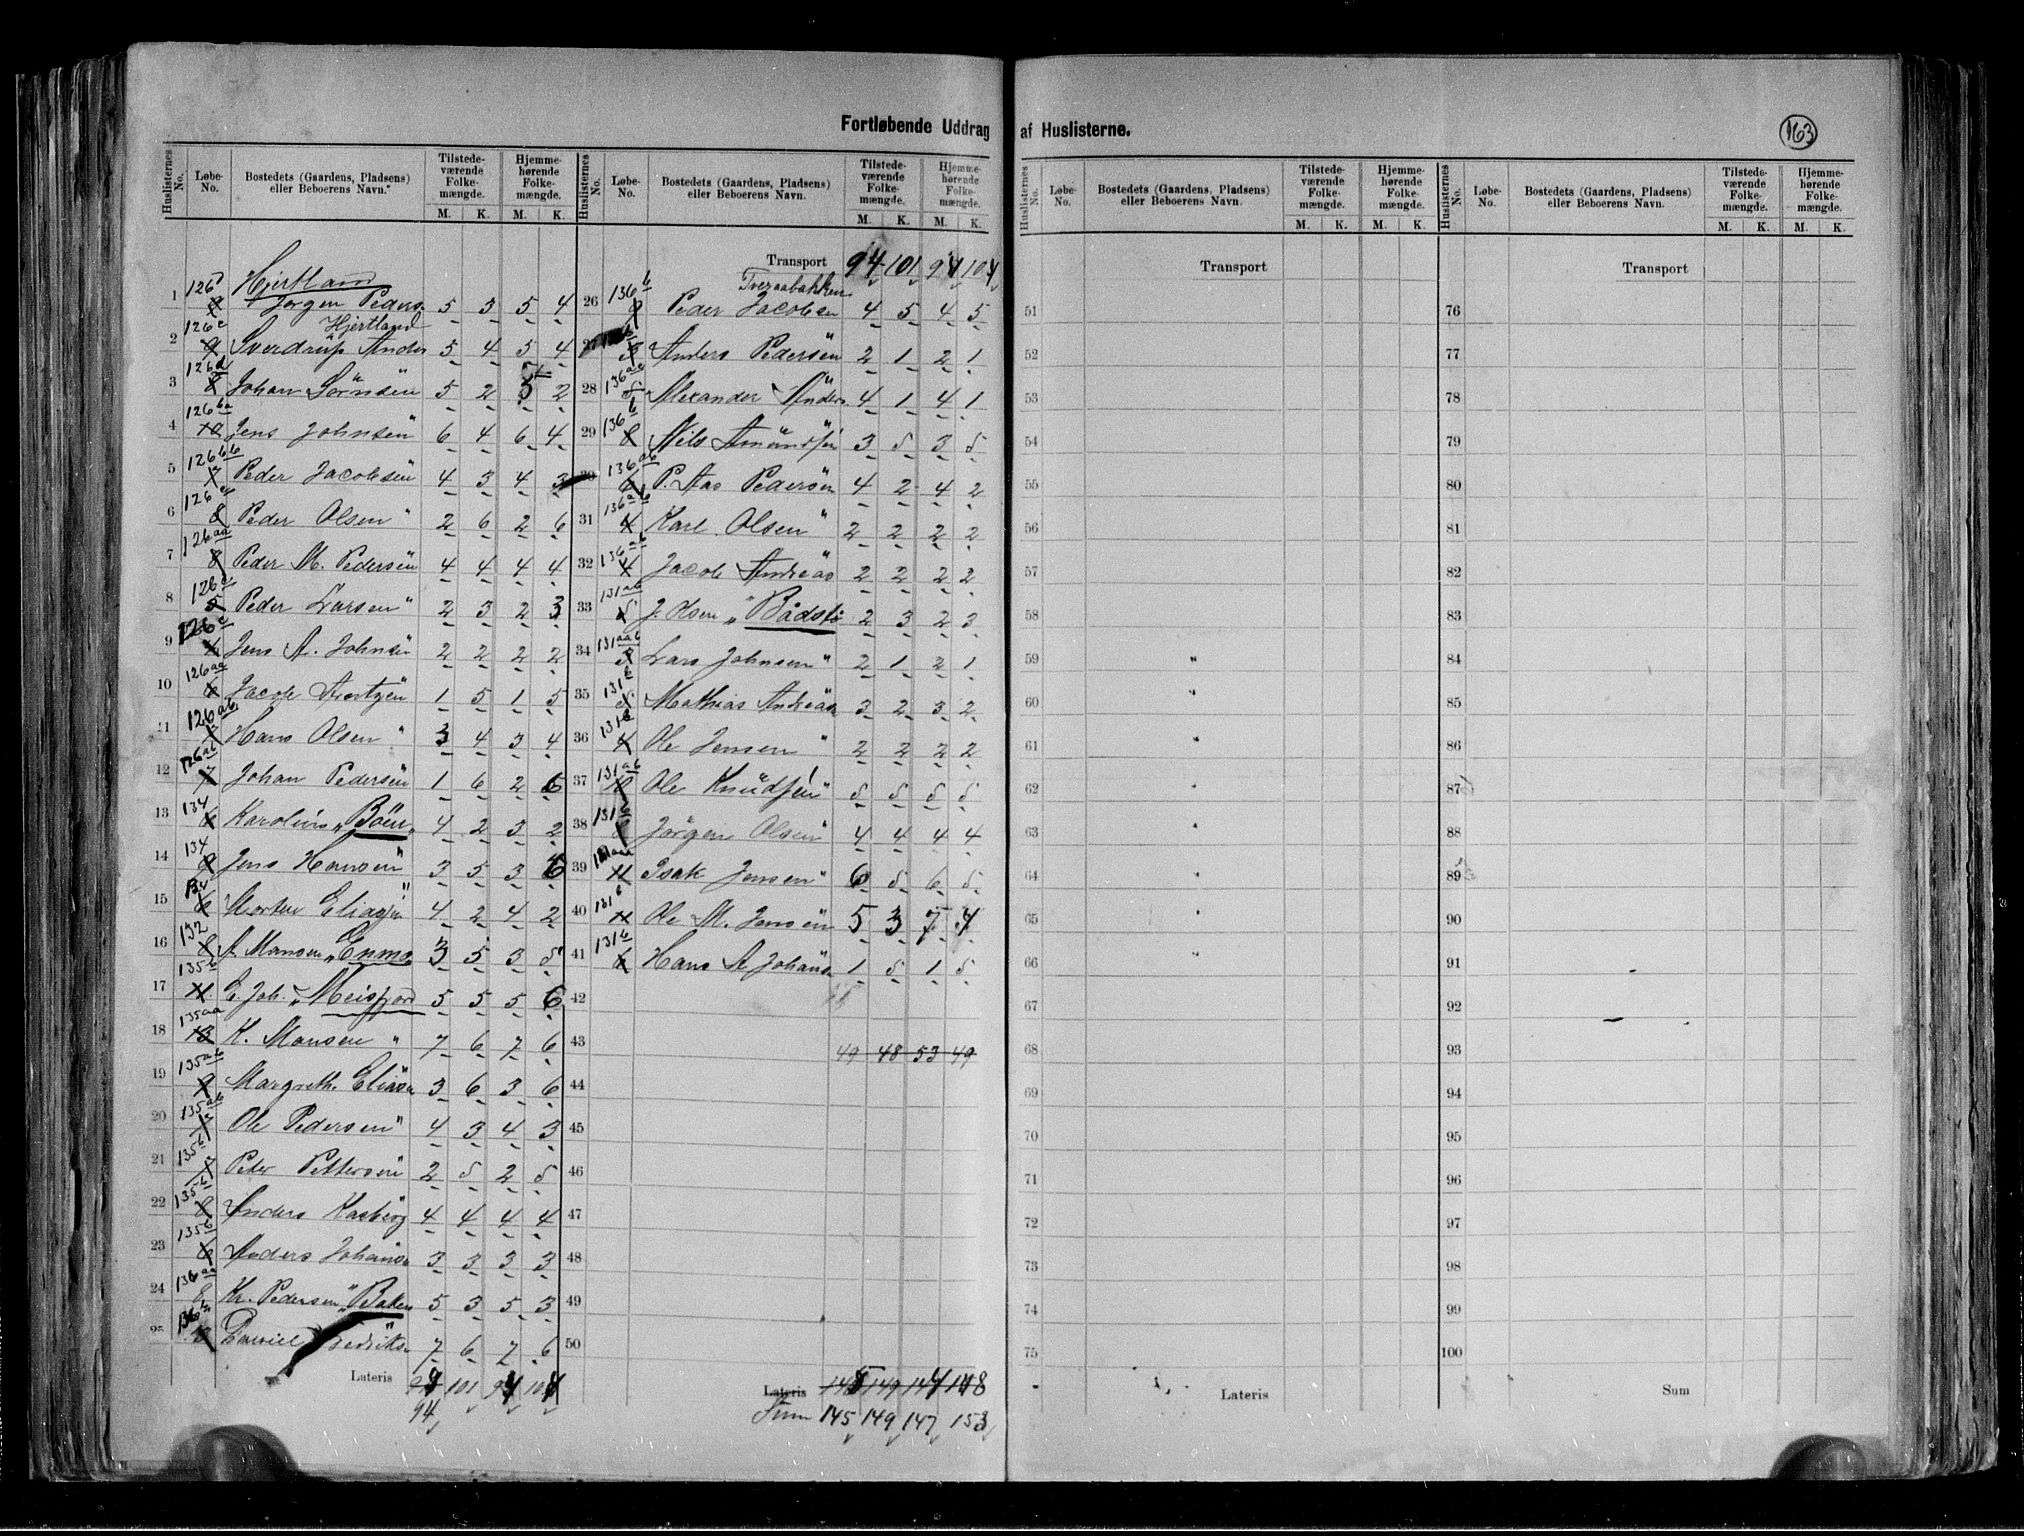 Fortløbende Uddrag af Huslisterne.
163
Huslisternes No. Løbe-No. Bostedets (Gaardens, Pladsens) eller Beboerens Navn. Tilstedeværende Folkemængde. M. K. Hjemmehørende Folkemængde. M. K.
Hjertland
1 126 Jørgen Peders. 5 3 5 4
Hjertland
2 126 Sverdrup Anders 5 4 5 4
3 126 Johan Sörnsen 5 2 5 2
4 126 Jens Johnsen 6 4 6 4
5 126 Peder Jacobsen 4 3 4 3
6 126 Peder Olsen " 2 6 2 6
7 126aa Peder M. Pedersen 4 4 4 4
8 126 Peder Larsen " 2 3 2 3
9 126 Jens A. Johnsen 2 2 2 2
10 126aa Jacob 1 5 1 5
11 126ab Hans Olsen " 3 4 3 4
12 126ab Johan Pedersen 1 6 2 6
13 134 Karolius " Böen 4 2 3 2
14 134 Jens Hansen " 3 5 3 6
15 134 Morten Eliassen 4 2 4 2
16 132 A Monsen " Enmo 3 5 3 5
17 135b E. Joh. " Meisfjord 5 5 5 6
18 135aa K. Monsen " 7 6 7 6
19 135ab Margreth. Elias 3 6 3 6
20 135ab Ole Pedersen " 4 3 4 3
21 135b Peter Pettersen 2 5 2 5
22 135b Anders Kasberg 4 4 4 4
23 135b Anders Johans 3 3 3 3
24 136aa Kr. Pedersen " Baken 5 3 5 3
25 136 Daniel Fredriks. 7 6 7 6
Lateris 101
94
Huslisternes No. Løbe-No. Bostedets (Gaardens, Pladsens) eller Beboerens Navn. Tilstedeværende Folkemængde. M. K. Hjemmehørende Folkemængde. M. K.
Transport 94 101 94 104
Tveraabakken
26 136b Peder Jacobsen 4 5 4 5
27 Anders Pedersen 2 1 2 1
28 136 Alexander Anders. 4 1 4 1
29 136b Nils Amundsen 3 5 3 5
30 136ab P. Aas Pedersen 4 2 4 2
31 136ab Karl Olsen " 2 2 2 2
32 136ab Jacob Andreas 2 2 2 2
33 131ab J. Olsen " Bådst 2 3 2 3
34 131aab Lars Johnsen " 2 1 2 1
35 131b Mathias Andreas 3 2 3 2
36 131b Ole Jensen " 2 2 2 2
37 131ab Ole Knudsen " 5 5 5 5
38 131b Jörgen Olsen " 4 4 4 4
39 131aa Isak Jensen " 6 5 6 5
40 131b Ole M. Jensen 5 3 7 4
41 131b Hans A. Johans 1 5 1 5
42
43 49 48 53 49
44
45
46
47
48
49
50
Lateris 149
Sum 145 149 147 153
Huslisternes No. Løbe-No. Bostedets (Gaardens, Pladsens) eller Beboerens Navn. Tilstedeværende Folkemængde. M. K. Hjemmehørende Folkemængde. M. K.
Transport
51
52
53
54
55
56
57
58
59
60
61
62
63
64
65
66
67
68
69
70
71
72
73
74
75
Lateris
Huslisternes No. Løbe-No. Bostedets (Gaardens, Pladsens) eller Beboerens Navn. Tilstedeværende Folkemængde. M. K. Hjemmehørende Folkemængde. M. K.
Transport
76
77
78
79
80
81
82
83
84
85
86
87
88
89
90
91
92
93
94
95
96
97
98
99
100
Sum